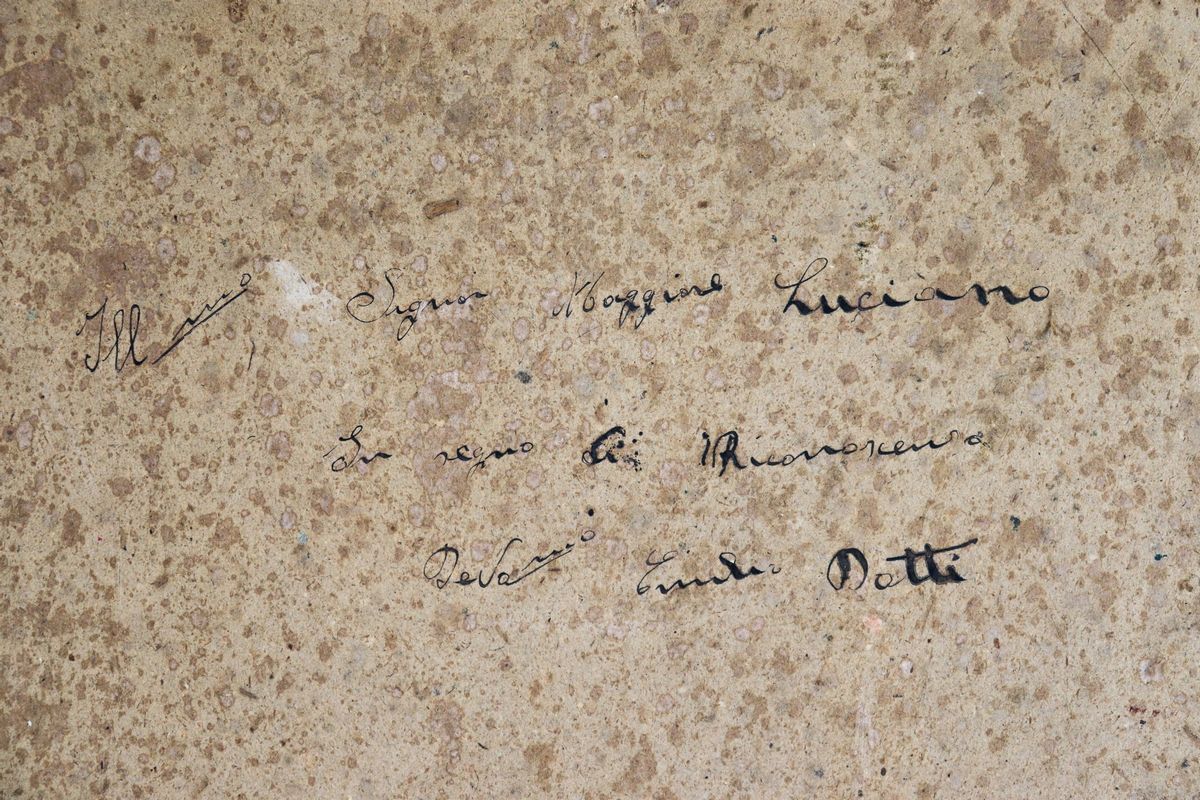 Ill mo Signor Maggiore Luciano
In segno di Riconoscenza
Dev mo Dotti